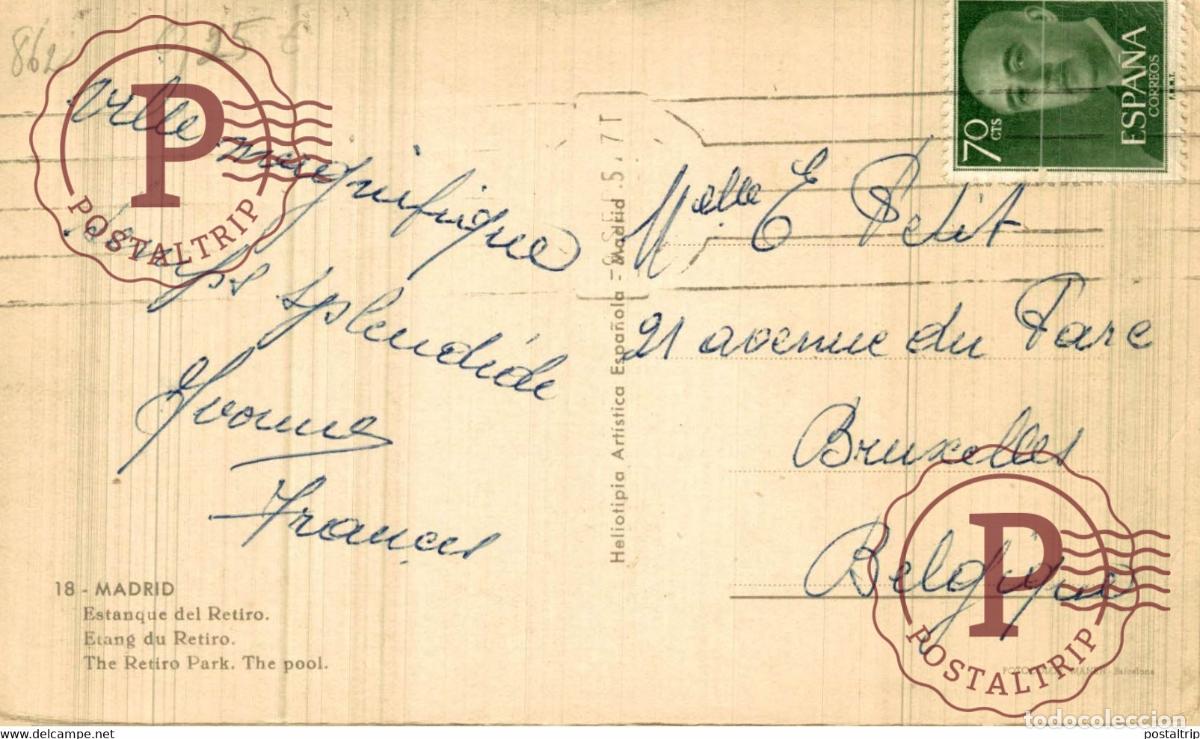 862
0,25 €
Ville magnifique
temps splendide
Yvonne
Francis
18 - MADRID
Estanque del Retiro.
Etang du Retiro.
The Retiro Park. The pool.
Heliotipia Artística Española - Madrid
70 CTS
ESPAÑA
CORREOS
F.N.M.T.
Melle E Petit
21 avenue du Parc
Bruxelles
Belgique
Barcelona
P
POSTALTRIP
P
POSTALTRIP
todocoleccion
www.delcampe.net
postaltrip